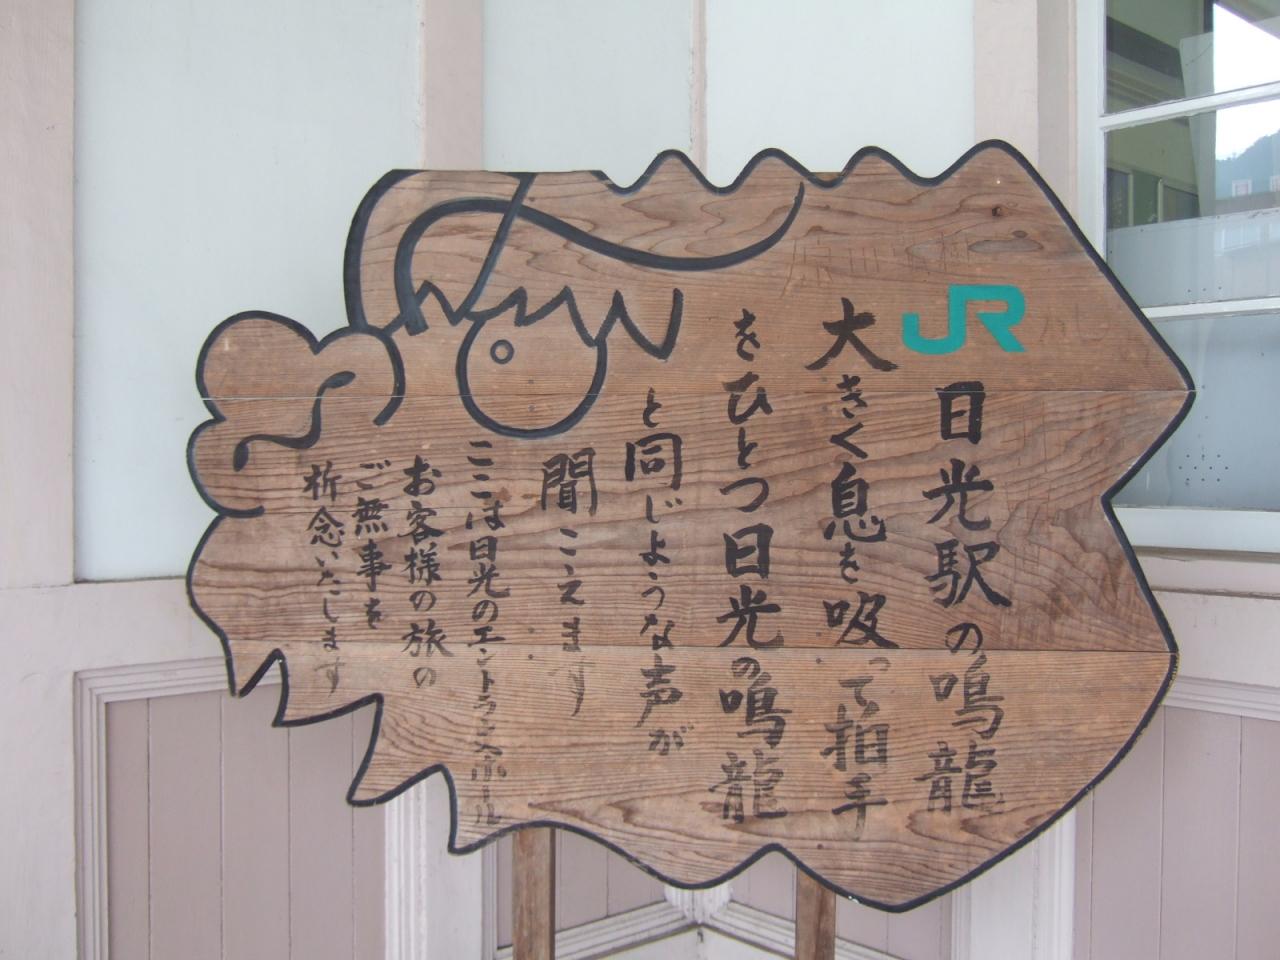 JR
日光駅の鳴龍
大きく息を吸って拍手
をひとつ日光の鳴龍
と同じような声が
聞こえます
ここは日光のエントランスホール
お客様の旅の
ご無事を
祈念いたします